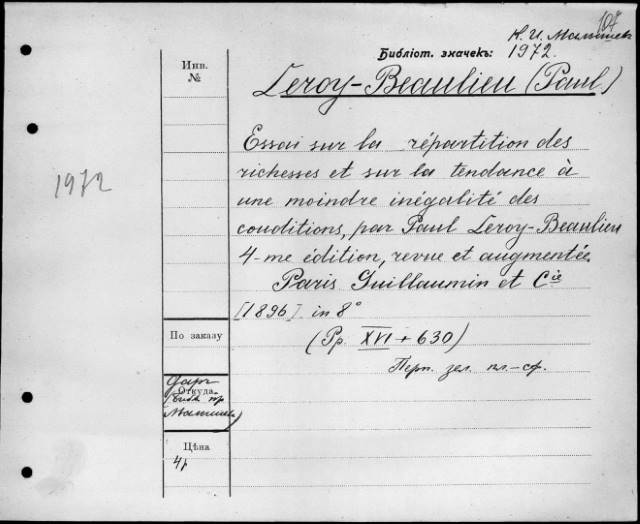 107
К. И. Малышевъ
Библіот. значекъ: 1972
Инв.
№
Leroy-Beaulieu (Paul)
Essai sur la répartition des
richesses et sur la tendance à
1972
une moindre inégalité des
conditions, par Paul Leroy-Beaulieu
4-me édition, revue et augmentée
Paris Guillaumin et Cie
[1896] in 8°
По заказу
(Pp. XVI + 630)
Перп. зел. кл.-сф.
Даръ
Откуда
Цѣна
4р